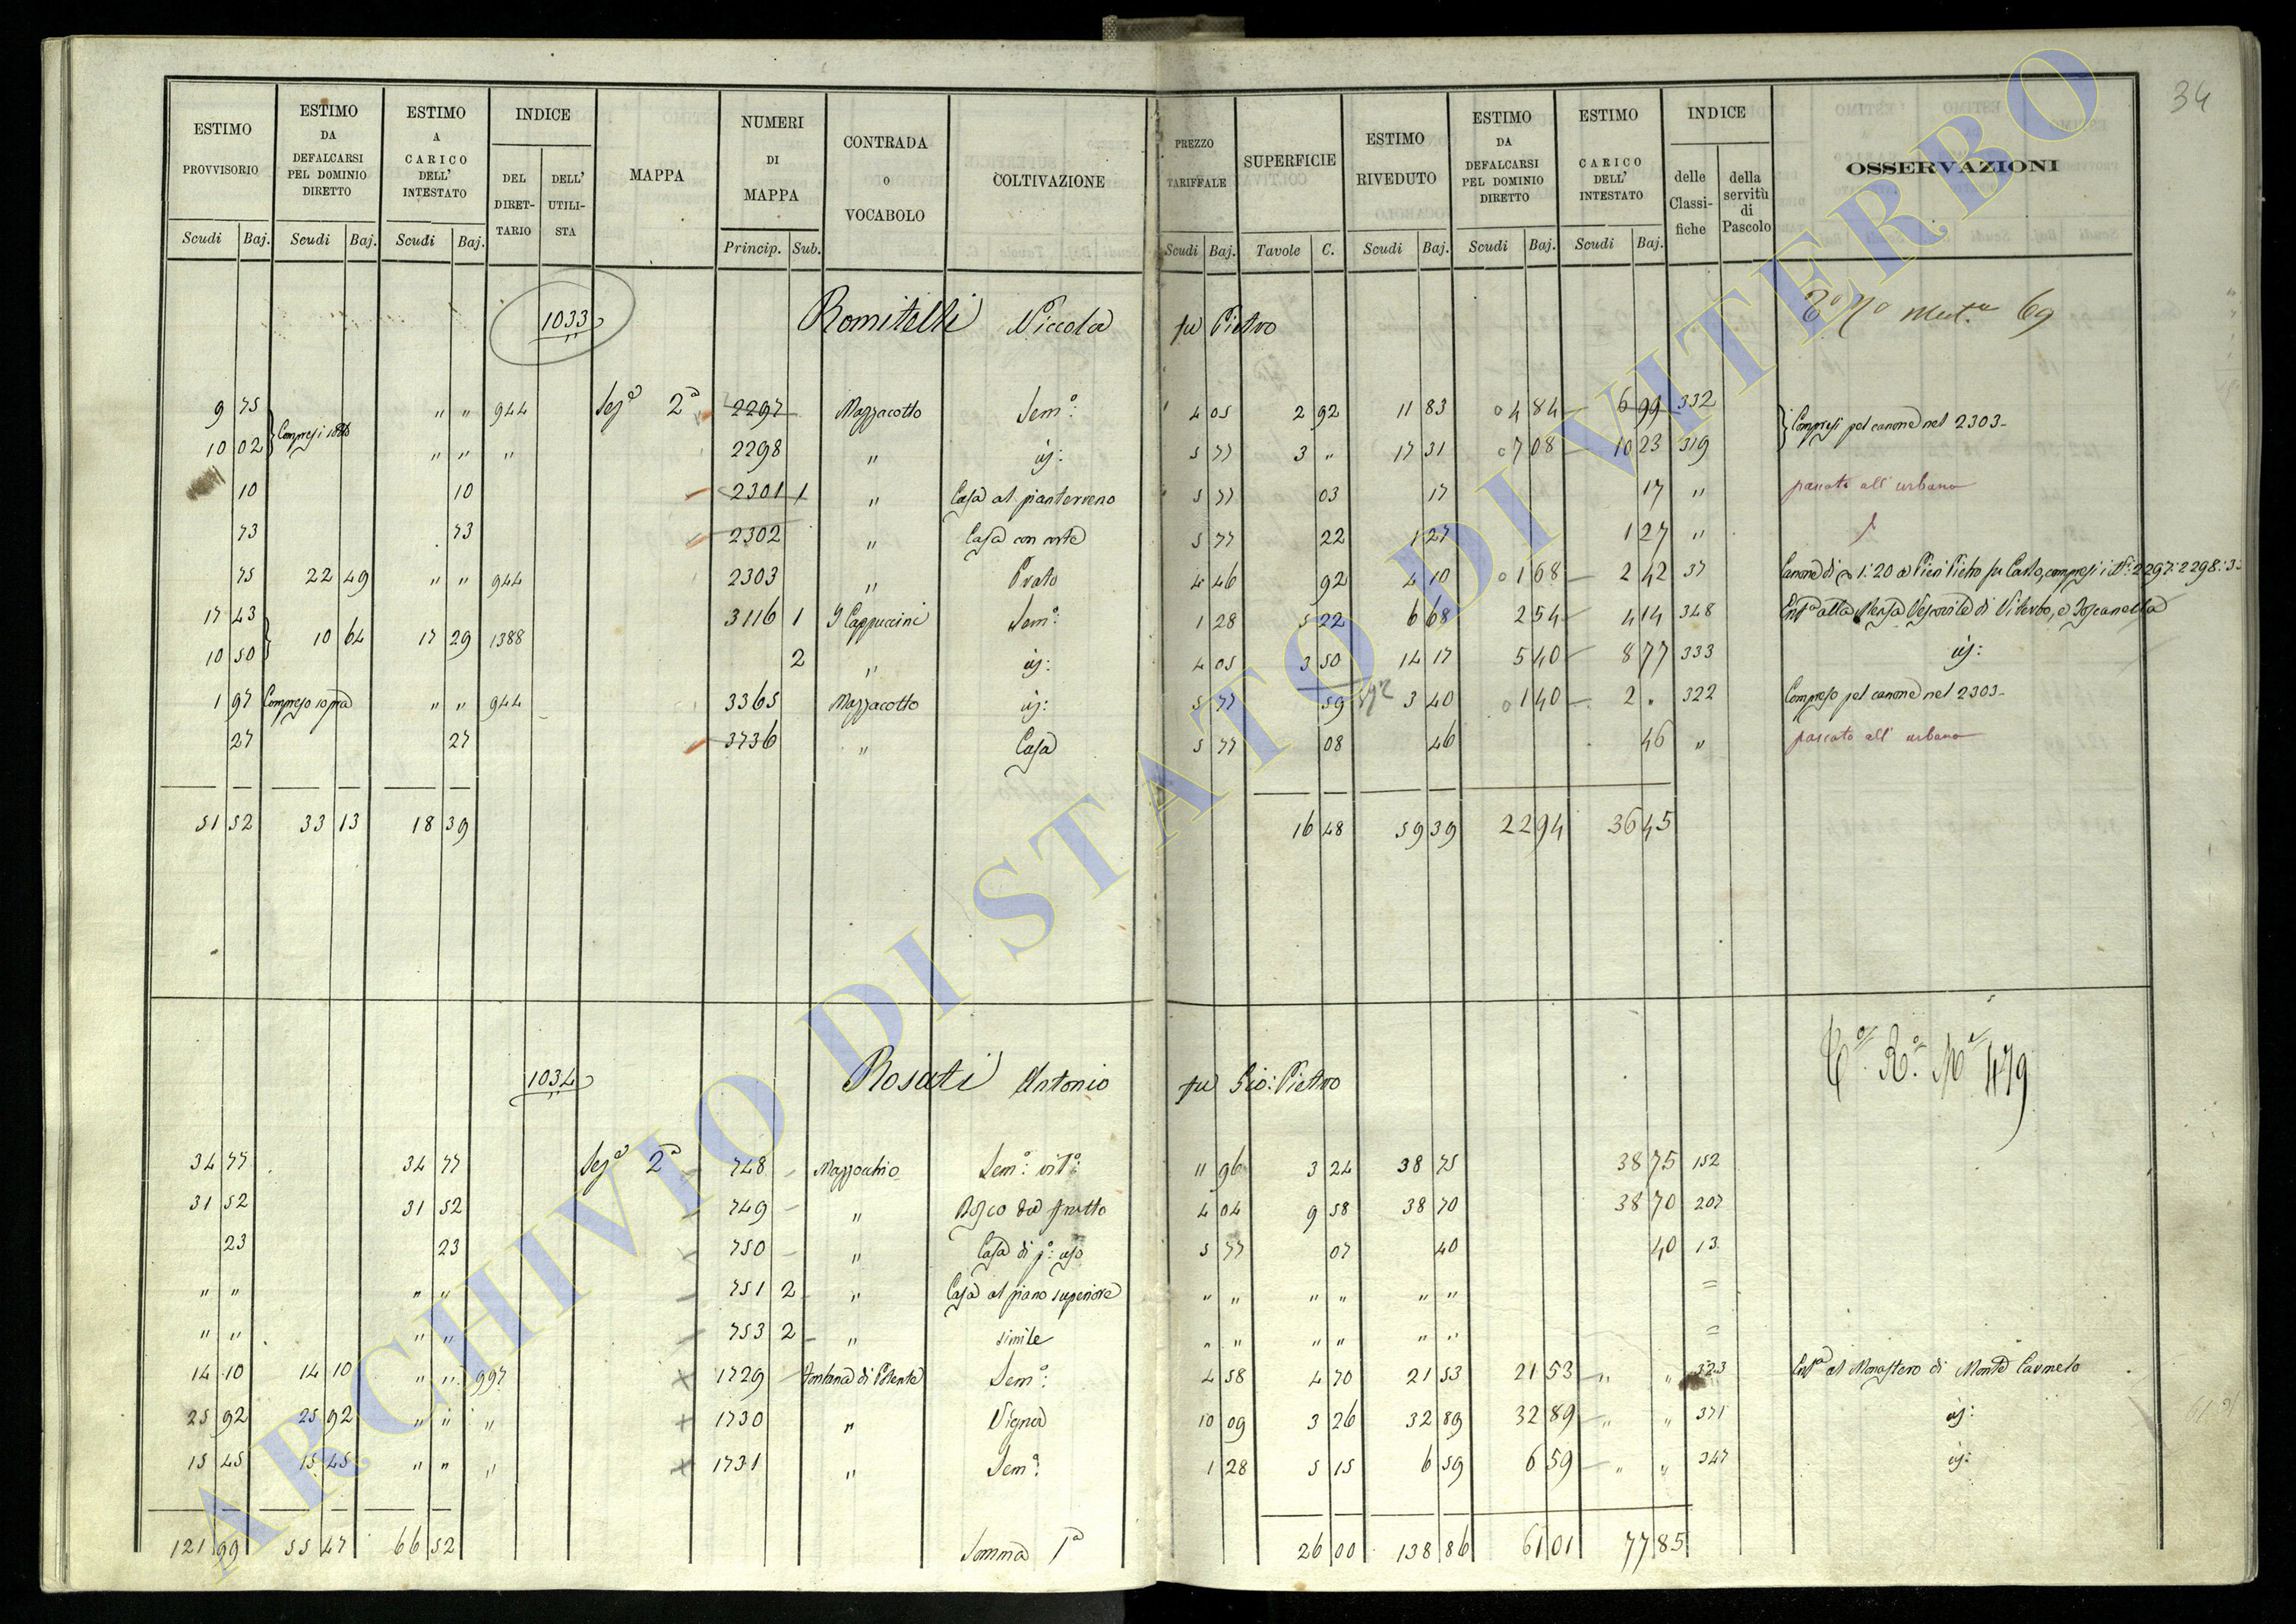 34
ESTIMO PROVVISORIO Scudi Baj.
ESTIMO DA DEFALCARSI PEL DOMINIO DIRETTO Scudi Baj.
ESTIMO A CARICO DELL' INTESTATO Scudi Baj.
INDICE DEL DIRET- TARIO DELL' UTILI- STA
MAPPA
NUMERI DI MAPPA Princip. Sub.
CONTRADA O VOCABOLO
COLTIVAZIONE
PREZZO TARIFFALE Scudi Baj.
SUPERFICIE Tavole C.
ESTIMO RIVEDUTO Scudi Baj.
ESTIMO DA DEFALCARSI PEL DOMINIO DIRETTO Scudi Baj.
ESTIMO A CARICO DELL' INTESTATO Scudi Baj.
INDICE delle Classi- fiche della servitù di Pascolo
OSSERVAZIONI
1033 Romitelli Niccola fu Pietro 69
9 75 " " 944 Sezª 2ª 2297 Mazzacotto Semº: 4 05 2 92 11 83 4 84 6 99 332 Compresi pel canone nel 2303
10 02 Compresi " " " 2298 " id: 5 77 3 " 17 31 7 08 10 23 319
10 10 2301 1 " Casa al pianterreno 5 77 03 17 17 " passato all' urbano
73 73 2302 " Casa con corte 5 77 22 1 27 1 27 "
75 22 49 " " 944 2303 " Prato 4 46 92 4 10 1 68 2 42 37 Canone di 1:20 a Pieri Pietro fu Carlo, compresi i Nⁱ: 2297: 2298:
17 43 10 64 17 29 1388 3116 1 I Cappuccini Semº: 1 28 5 22 6 68 2 54 4 14 348 Entª alla Mensa Vescovile di Viterbo, e Toscanella
10 50 2 " id: 4 05 3 50 14 17 5 40 8 77 333 id:
1 97 Compreso sopra " " 944 3365 Mazzacotto id: 5 77 59 3 40 1 40 2 " 322 Compreso pel canone nel 2303
27 27 3736 " Casa 5 77 08 46 46 " passato all' urbano
51 52 33 13 18 39 16 48 59 39 22 94 36 45
1034 Rosati Antonio fu Gio: Pietro 479
34 77 34 77 Sezª 2ª 748 Mazzocchio Semº: vitº: 11 96 3 24 38 75 38 75 152
31 52 31 52 749 " Bosco da frutto 4 04 9 58 38 70 38 70 207
23 23 750 " Casa di pº: uso 5 77 07 40 40 13
" " " " 751 2 " Casa al piano superiore " " " " " " =
" " " " 753 2 " simile " " " " " " =
14 10 14 10 " " 997 1729 Fontana di Polente Semº: 4 58 4 70 21 53 21 53 " " 323 Entª al Monastero di Monte Carmelo
25 92 25 92 " " " 1730 " Vigna 10 09 3 26 32 89 32 89 " " 371 id:
15 45 15 45 " " " 1731 " Semº: 1 28 5 15 6 59 6 59 " " 347 id:
121 99 55 47 66 52 Somma 1ª 26 00 138 86 61 01 77 85
ARCHIVIO DI STATO DI VITERBO